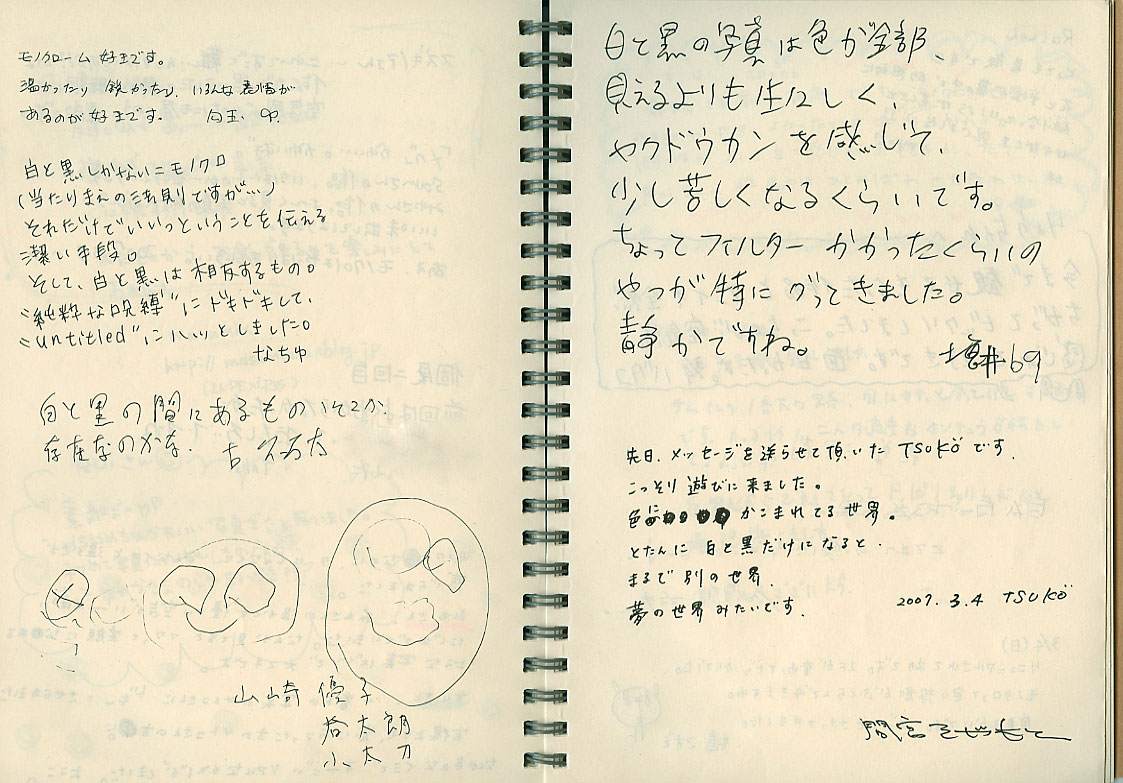 モノクローム 好きです。
温かったり 鋭かったり、いろんな表情が
あるのが好きです。
白と黒しかない=モノクロ
(当たりまえの法則ですが…)
それだけでいいっということを伝える
潔い手段。
そして、白と黒は相反するもの。
"純粋な呪縛"にドキドキして、
"untitled"にハッとしました。
なちゅ
白と黒の間にあるものにこそが
存在なのかな、
山崎 優子
杏太朗
小太刀
白と黒の写真は色が全部
見えるよりも生々しく、
ヤクドウカンを感じて、
少し苦しくなるくらいです。
ちょってフィルターかかったくらいの
やつが特にグッてきました。
静かですね。
69
先日、メッセージを送らせて頂いた TSUKÖ です.
こっそり遊びに来ました。
色に かこまれてる世界。
とたんに 白と黒だけになると.
まるで 別の世界.
夢の世界みたいです.
2007. 3. 4 TSUKÖ
間宮